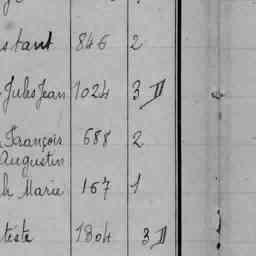 stant 846 2
Jules Jean 1024 3 D
François 688 2
Augustin
h Marie 167 1
tiste 1804 3 D